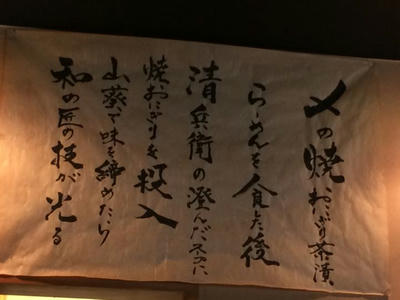 〆の焼おにぎり茶漬
らーめんを食した後
清兵衛の澄んだスープに
焼おにぎりを投入
山葵で味を締めたら
和の匠の技が光る